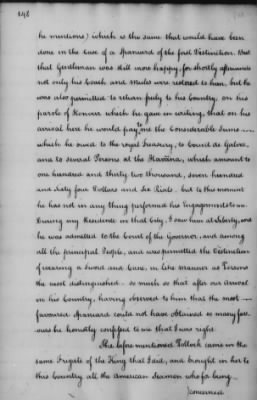 he mentions) which is the same that would have been
done in the Case of a Spaniard of the first Distinction. But
that Gentleman was still more happy, for shortly afterwards
not only his Coach and Mules were restored to him, but he
was also permitted to return freely to his Country, on his
parole of Honour which he gave in writing, that on his
arrival here he would pay me the Considerable Sums
which he owed to the royal Treasury, to Count de Galvez,
and to several Persons at the Havanna, which amount to
one hundred and thirty two thousand, seven hundred
and sixty four Dollars and six Rials. but to this moment
he has not in any thing performed his Engagements to me.
During my Residence in that City, I saw him at Liberty, and
he was admitted to the Court of the Governor, and among
all the principal People, and was permitted the Distinction
of wearing a Sword and Cane, in like manner as Persons
the most distinguished so much so that after our arrival
in his Country, having observed to him that the most
favoured Spaniard could not have obtained so many favours
he honestly confessed to me that I was right.
The before mentioned Pollock came in the
same Frigate of the King that I did, and brought in her to
this Country all the American Seamen who for being
concerned